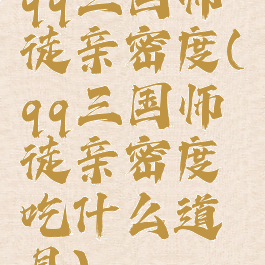 qq三国师
徒亲密度(
qq三国师
徒亲密度
吃什么道
具)